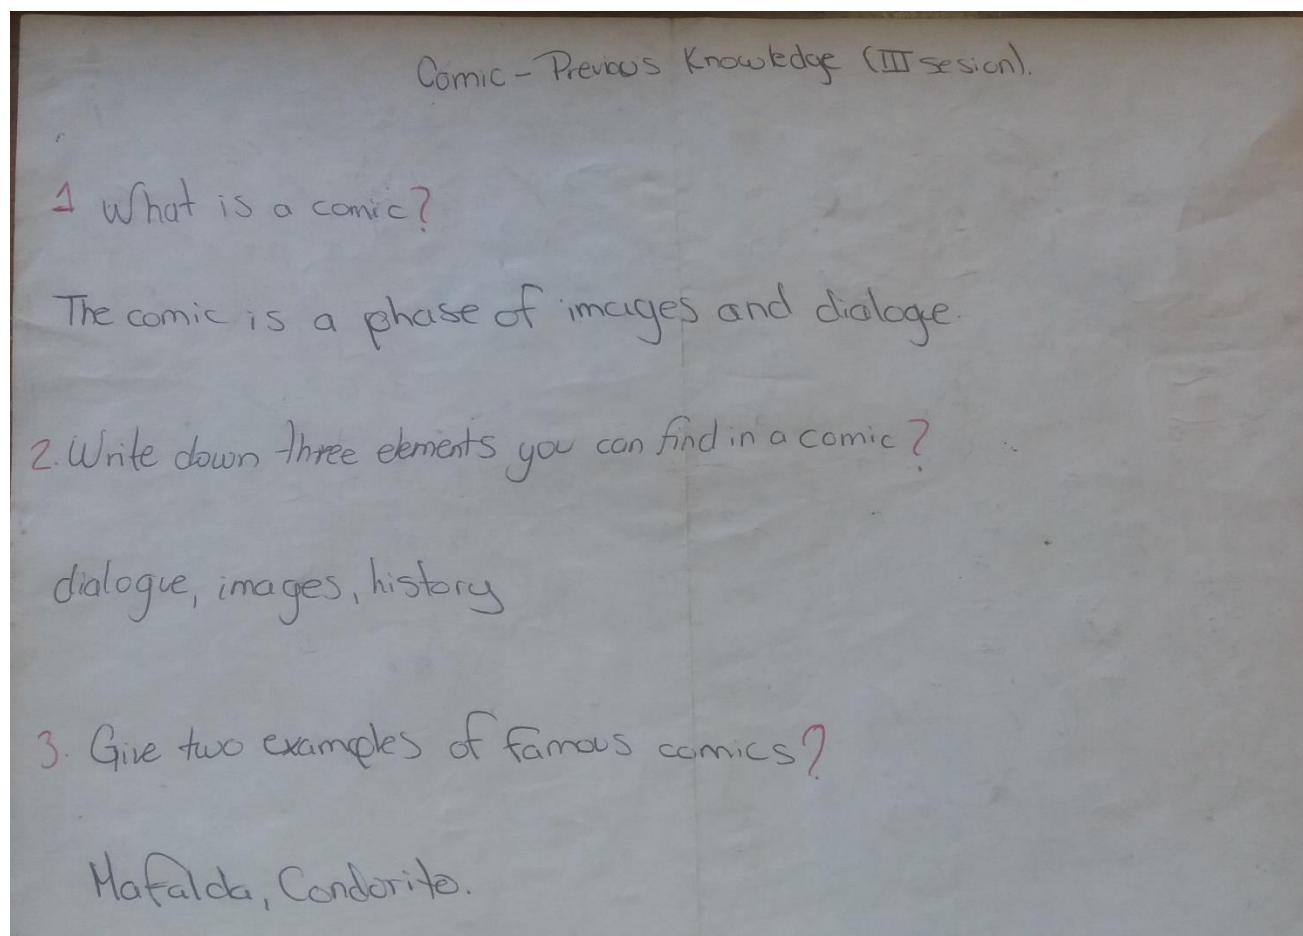 Comic - Previous Knowledge (III sesion).
1 What is a comic?
The comic is a phase of images and dialoge.
2. Write down three elements you can find in a comic?
dialogue, images, history
3. Give two examples of famous comics?
Mafalda, Condorito.